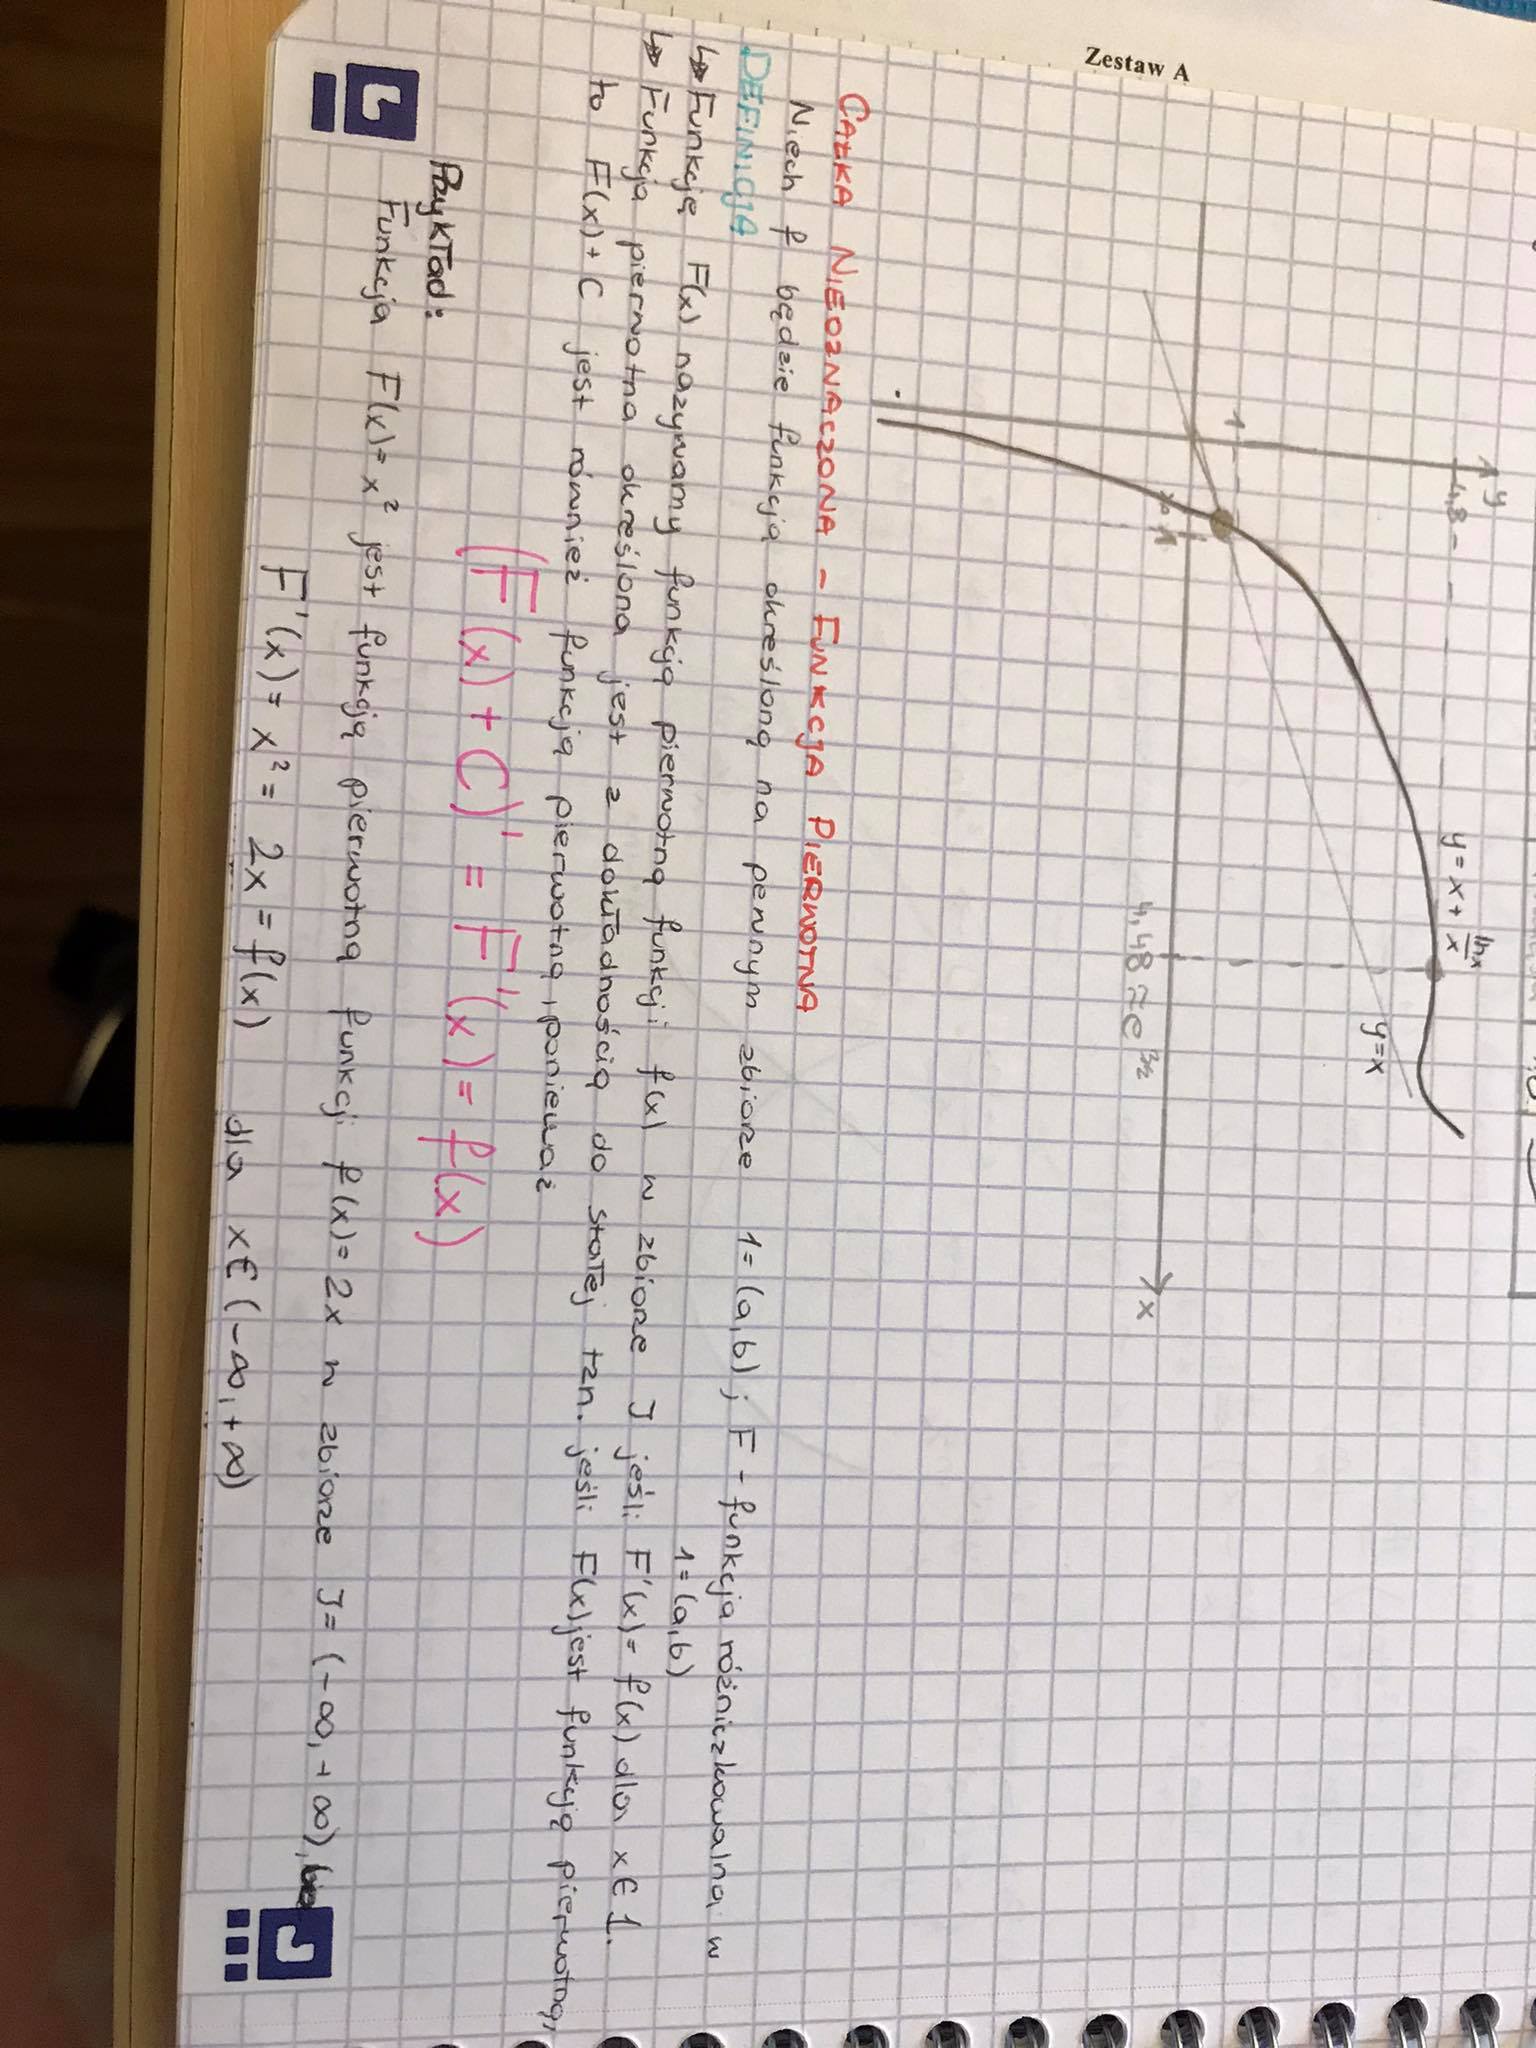 Zestaw A
y
4,8
1
x₀ 1
y = x + lnx/x
y=x
4,48 ≈ e^3/2
x
CAŁKA NIEOZNACZONA - FUNKCJA PIERWOTNA
Niech f będzie funkcją określoną na pewnym zbiorze 1=(a,b); F - funkcja różniczkowalna w
1=(a,b)
DEFINICJA
↳ Funkcję F(x) nazywamy funkcją pierwotną funkcji f(x) w zbiorze J jeśli F'(x)= f(x) dla x∈1.
↳ Funkcja pierwotna określona jest z dokładnością do stałej tzn. jeśli F(x) jest funkcją pierwotną,
to F(x)+C jest również funkcją pierwotną, ponieważ
(F(x)+C)' = F'(x)= f(x)
Przykład:
Funkcja F(x)= x² jest funkcją pierwotną funkcji f(x)= 2x w zbiorze J= (-∞,+∞), bo
F'(x)= x²= 2x = f(x) dla x∈(-∞,+∞)